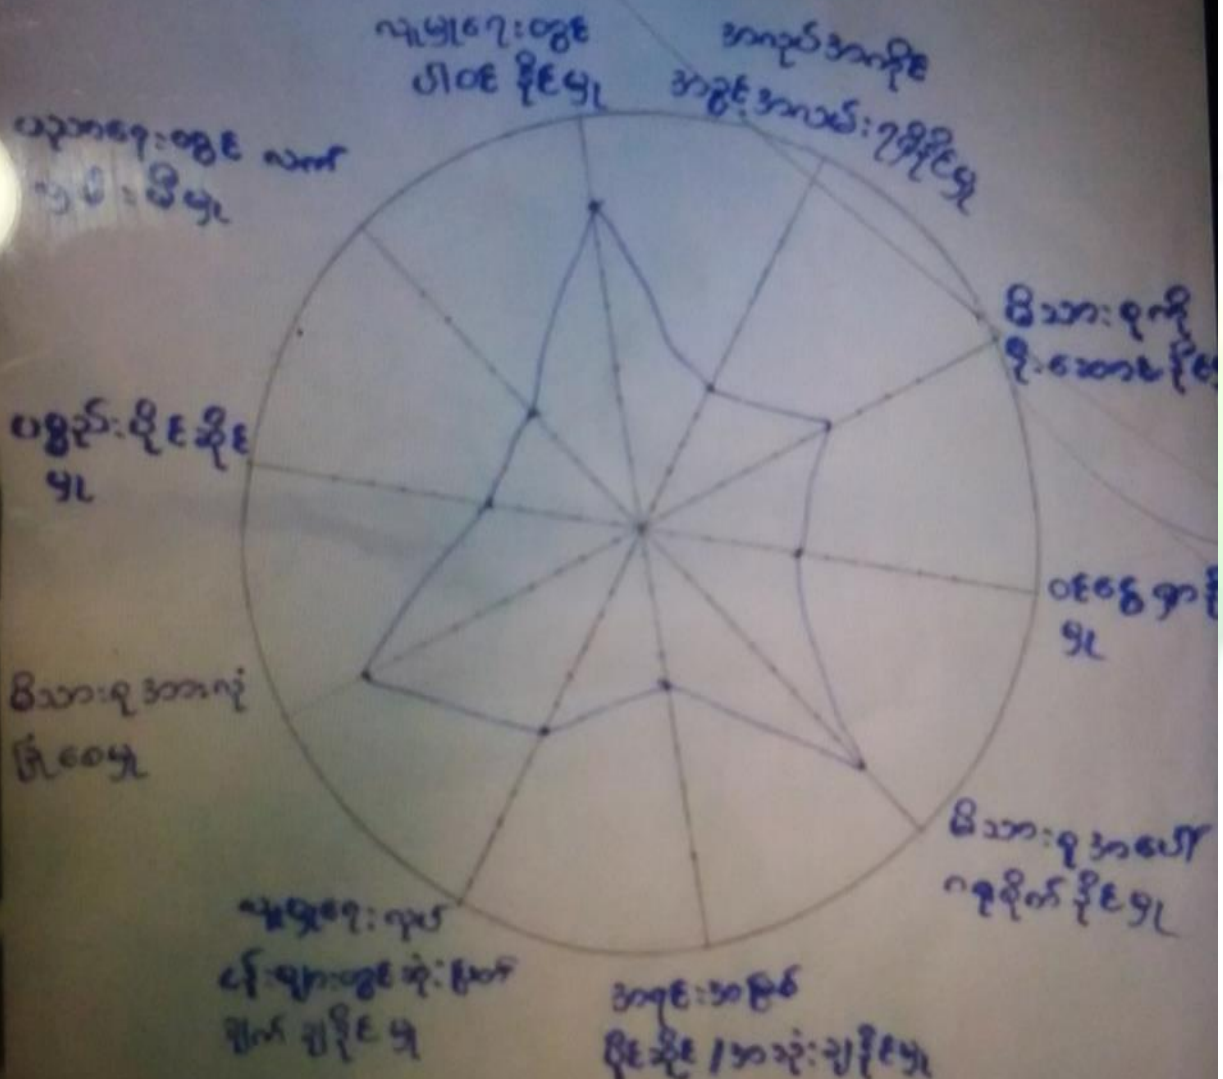 လူမှုရေးတွင်
ပါဝင်နိုင်မှု
အလုပ်အကိုင်
အခွင့်အလမ်းရရှိနိုင်မှု
မိသားစုကို
ဦးဆောင်နိုင်
ဝင်ငွေရှာနိုင်
မှု
မိသားစုအပေါ်
ဂရုစိုက်နိုင်မှု
အရင်းအမြစ်
ပိုင်ဆိုင်/အသုံးချနိုင်မှု
လူမှုရေးလုပ်
ငန်းများတွင်ဆုံးဖြတ်
ချက်ချနိုင်မှု
မိသားစုအားလုံး
ခြုံငေမှု
ပစ္စည်းပိုင်ဆိုင်
မှု
ပညာရေးတွင် လက်
လှမ်းမီမှု